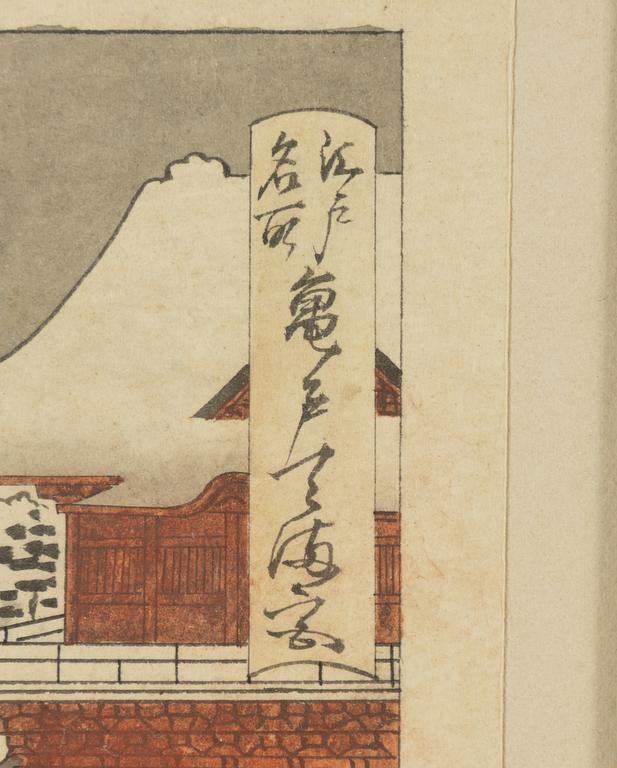 江戸
名所
亀戸天満宮